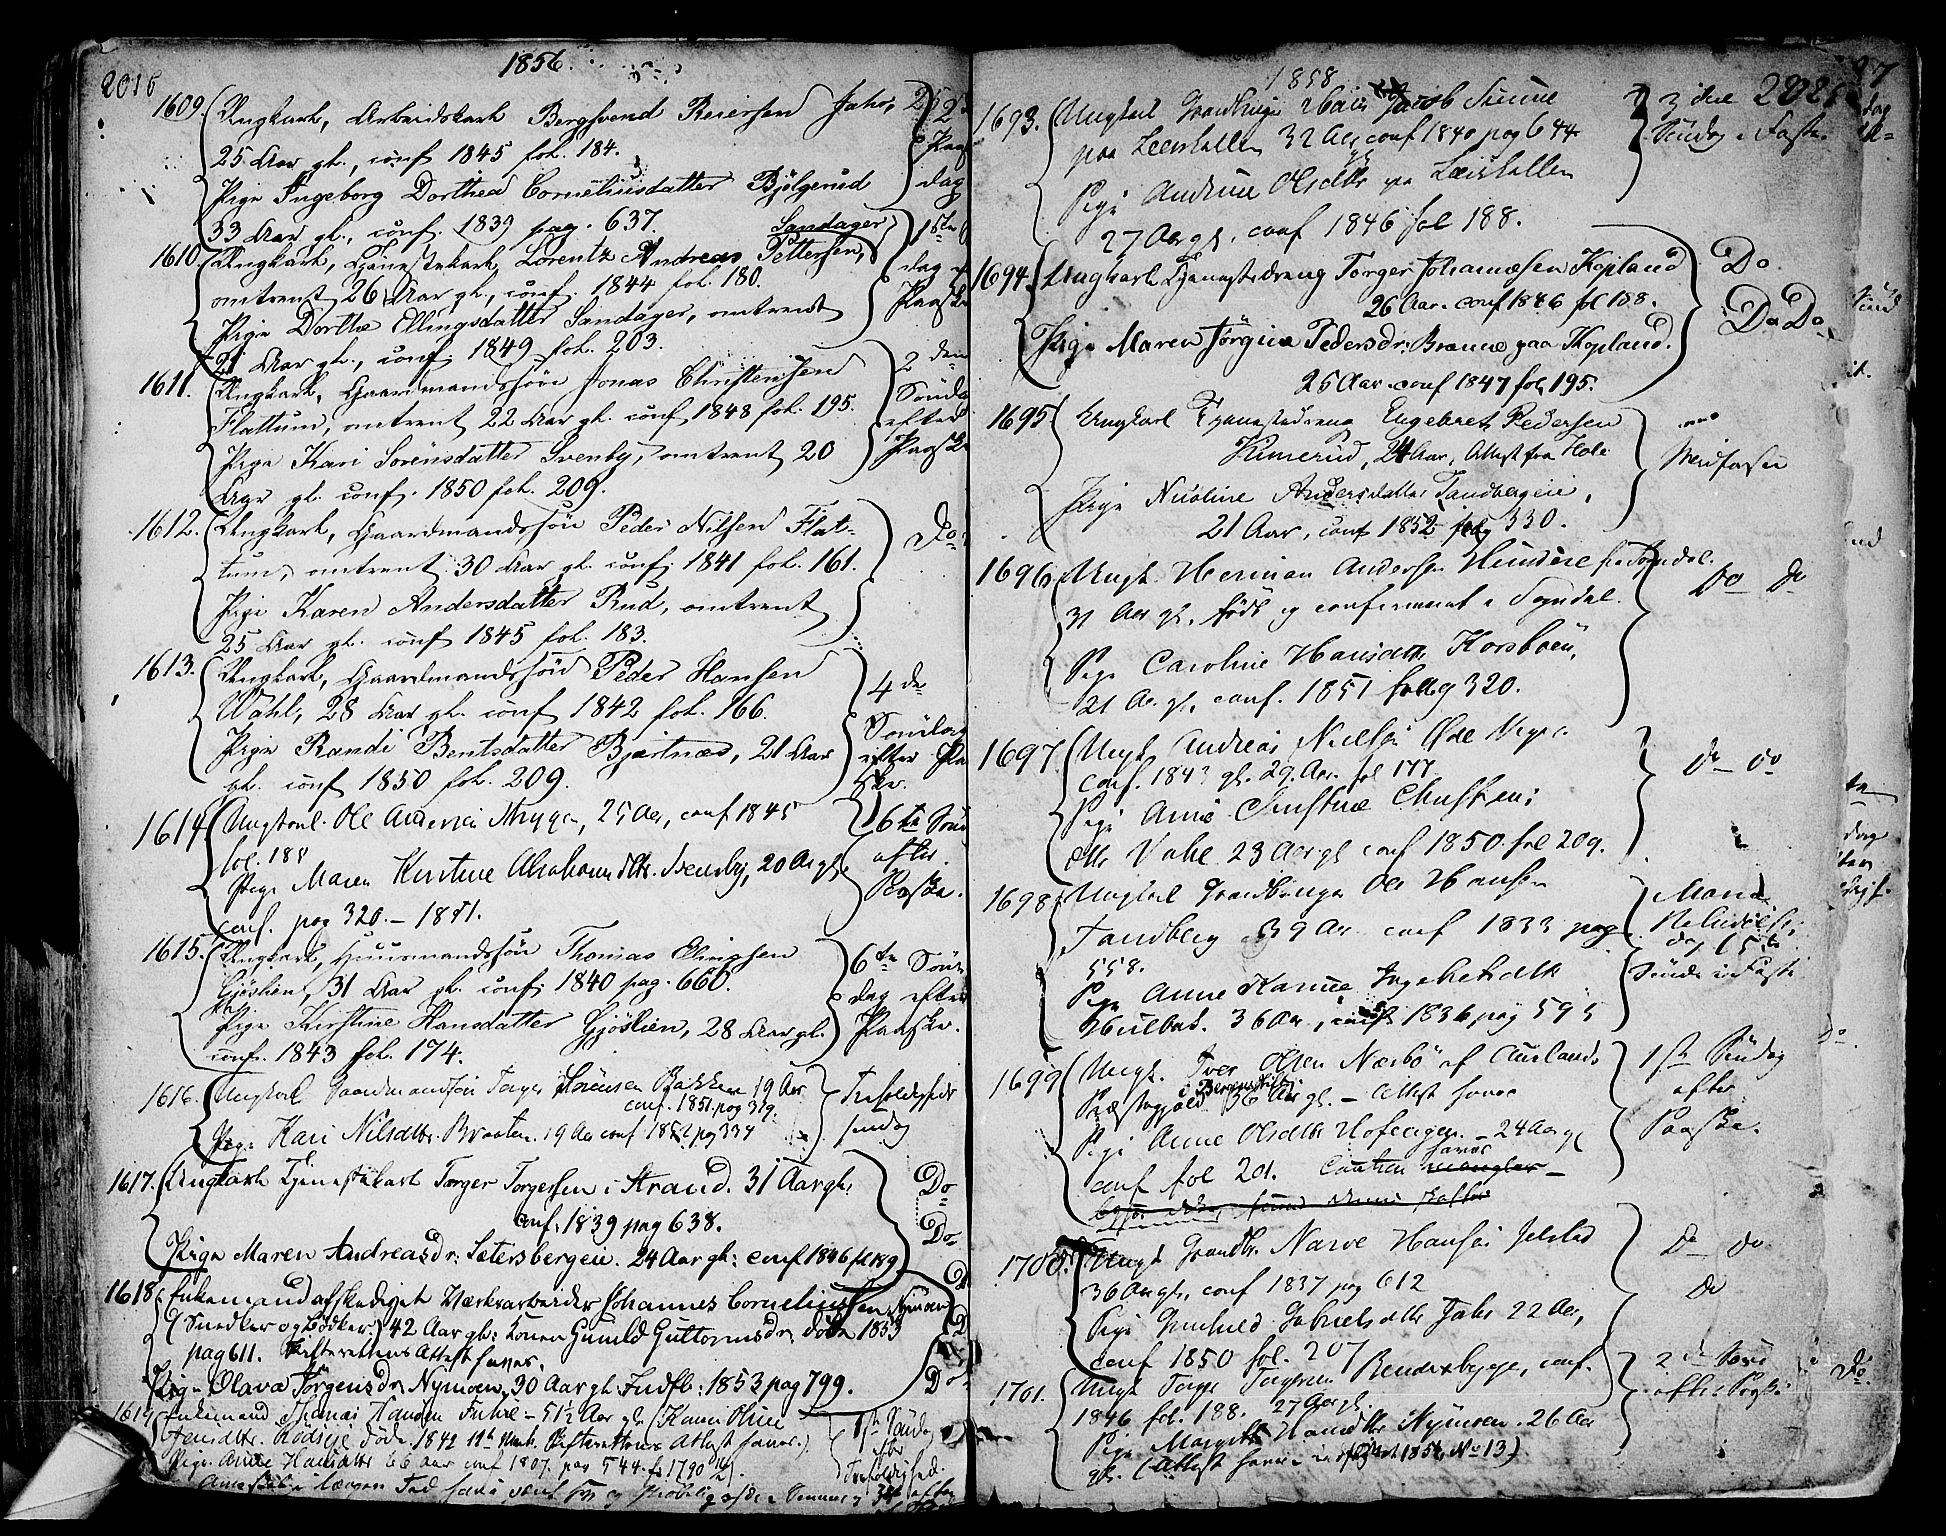 2016
1856.
1609. Ungkarl, Arbeidskarl Bergsvend Reiersen Jahr,
25 Aar gl., conf. 1845 fol. 184.
Pige Ingeborg Dorthea Corneliusdatter Bjølgerud
33 Aar gl., conf. 1839 pag. 637.
Paaskedag
Sandager
1610. Ungkarl, Tjenestekarl Lorentz Andreas Pettersen,
omtrent 26 Aar gl., conf. 1844 fol. 180.
Pige Dorthe Ellingsdatter Sandager, omtrent
21 Aar gl., conf. 1849 fol. 203.
1ste
dag
Paaske
1611. Ungkarl, Gaardmandssøn Jonas Christensen
Flattum, omtrent 22 Aar gl. conf. 1848 fol. 195.
Pige Kari Sørensdatter Svenby, omtrent 20
Aar gl. conf. 1850 fol. 209.
2den
Søndag
efter
Paaske
1612. Ungkarl, Gaardmandssøn Peder Nilsen Flat-
tum, omtrent 30 Aar gl. conf. 1841 fol. 161.
Pige Karen Andersdatter Rud, omtrent
25 Aar gl. conf. 1845 fol. 183.
Do.
1613. Ungkarl, Gaardmandssøn Peder Hansen
Wahl, 28 Aar gl. conf. 1842 fol. 166.
Pige Randi Bentsdatter Bjærtnæs, 21 Aar
gl. conf. 1850 fol. 209.
4de
Søndag
efter Paa
ske.
1614. Ungkarl Ole Andersen Mygen, 25 Aar, conf 1845
fol. 188
Pige Maren Kirstine Abrahamsdtr. Svensby, 20 Aar gl.
conf. pag 320. - 1851.
6te Sønd
efter
Paaske.
1615. Ungkarl, Huusmandssøn Thomas Ellingsen
Gjøslien, 31 Aar gl. conf. 1840 pag. 660.
Pige Kirstine Hansdatter Gjøslien, 28 Aar gl.
conf. 1843 fol. 174.
6te Søn
dag efter
Paaske.
1616. Ungkarl Gaardmandssøn Torger Sørensen Bakken 19 Aar
conf. 1851. pag 319.
Pige Kari Nilsdtr. Braaten. 19 Aar conf 1852 pag 334
Trefoldigheds
søndag
1617. Ungkarl Tjenestekarl Torger Torgersen i Strand. 31 Aar gl.
conf. 1839 pag 638.
Pige Maren Andreasdr. Setersbergeie. 24 Aar gl: conf 1846 fl 189
Do
Do
1618. Enkemand afskediget Værksarbeider Johannes Corneliussen Nymoen
(Snedker og Bødker) 42 Aar gl: Konen Gunild Guttormsdr. døde 1853
pag 611. Skifterettens Attest haves.
Pige Olava Jørgensdr. Nymoen, 30 Aar gl: Indfl: 1853 pag 799.
Do
1619 Enkemand Thomas Hansen Fuhre - 51½ Aar gl. (Karen Oline
Jensdtr. Rødseje døde 1842 Skifterettens Attest haves.)
Pige Anne Hansdtr 66 Aar conf 1807. pag 544.
1ste Søndag
efter
Trefoldighed.
1858
2021
1693. Ungkarl Gaardbruger Jacob Simne
paa Leerhallen 32 Aar conf 1840 pag 644
Pige Andrine Olsdtr paa Leerhallen
27 Aar gl. conf 1846 fol 188.
3die
Søndag i Faste.
1694. Ungkarl Tjenestedreng Torger Johannesen Kopland
26 Aar. conf 1846 fol 188.
Pige Maren Jørgine Pedersdr: Brænne paa Kopland.
25 Aar. conf 1847 fol 195.
Do
Do Do
1695 Ungkarl Tjenestedreng Engebret Pedersen
Kimerud, 24 Aar, Attest fra Hole
Pige Nicoline Andersdatter Tandbergeie,
21 Aar, conf 1852 pag 330.
Midfaste
1696 Ungk. Herman Andersen Hundere fra Sogndal.
31 Aar gl., født og confirmeret i Sogndal.
Pige Caroline Hansdtr Korsbøen,
21 Aar gl. conf. 1851 pag 320.
Do Do
1697. Ungk. Andreas Nielsen Øde Mygen.
conf. 1843 gl. 29. Aar. fol 177
Pige Anne Christine Christens
dtr Vahl 23 Aar gl conf 1850 fol 209.
do do
1698 Ungkarl Gaardbruger Ole Hansen
Tandberg 39 Aar conf 1833 pag
558.
Pige Anne Karine Ingebretsdtr
Hvilbak. 36 Aar, conf 1836 pag 595
Mariæ
Bebudelses
dag (5te
Sønd i Faste
1699 Ungk. Iver Olsen Næsbø af Aurlands
Præstegjeld i Bergens Stift 36 Aar gl. - Attest haves
Pige Anne Olsdtr Hofengen. - 24 Aar gl
conf fol 201. Caution haves mangler -
1ste Søndag
efter
Paaske.
1700. Ungk Gaardbr. Narve Hansen Jelstad
36 Aar gl., conf 1837 pag 612
Pige Gunhild Gabrielsdtr Jahr 22 Aar,
conf 1850 fol. 207
Do do
do
1701. Ungk Torger Torgersen Benderbygge, conf.
1846 fol. 188. 27 Aar gl.
Pige Margrethe Hansdtr Nymoen. 26 Aar
gl. (Attest haves 1856 No 13)
2den Sønd
efter Paaske
Do